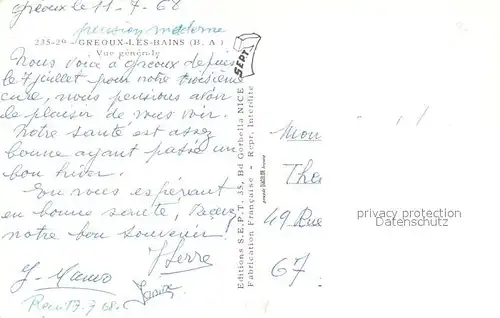 Gréoux le 11-7-68
pension moderne
235-29 - GREOUX-LES-BAINS (B. A.)
Vue générale
Nous voici à Gréoux depuis
le 7 juillet pour notre troisième
cure, nous pensions avoir
le plaisir de vous voir.
Notre santé est assez
bonne ayant passé un
bon hiver.
En vous espérant
en bonne santé, recevez
notre bon souvenir.
J Serre
Recu 17.7.68.
SEPT
Editions S.E.P.T. 35, Bd Gorbella NICE
Fabrication Française - Repr. Interdite
Mon
The
49 Rue
67
privacy protection
Datenschutz